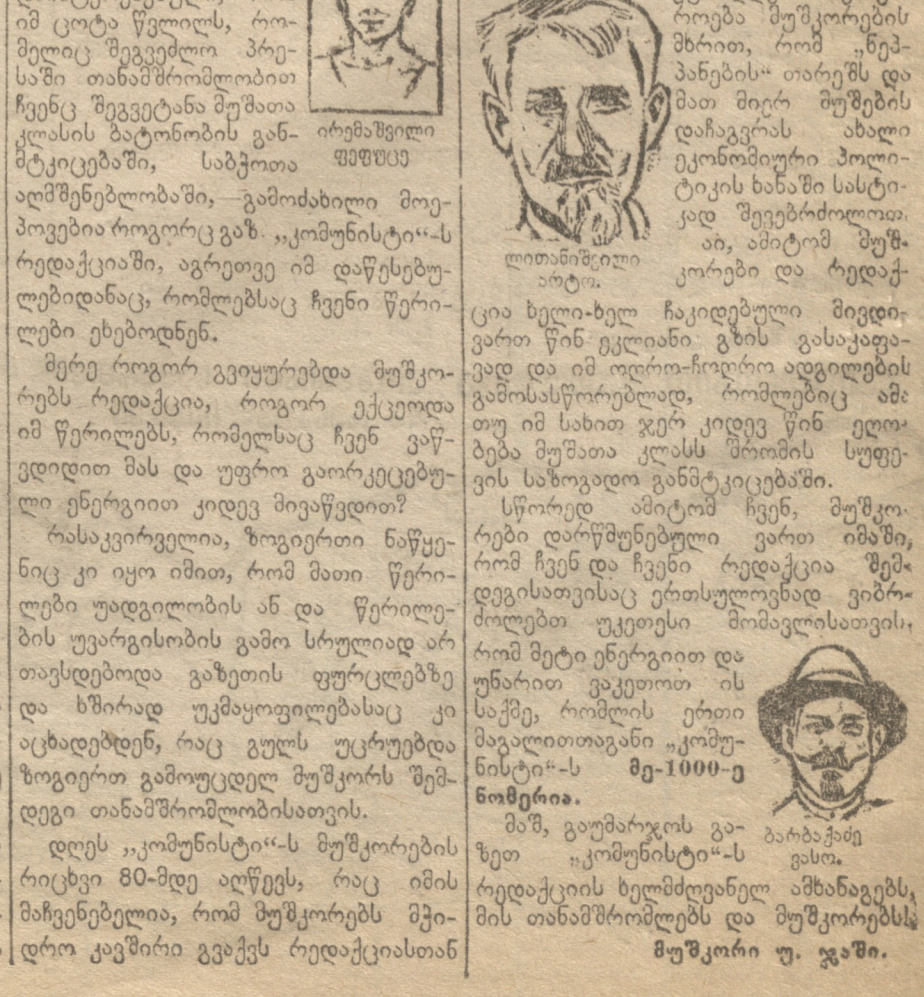 იმ ცოტა წვლილს, რო-
მელიც შეგვეძლო პრე-
საში თანამშრომლობით
ჩვენც შეგვეტანა მუშათა
კლასის ბატონობის გან-
მტკიცებაში, საბჭოთა
ირემაშვილი
ფეფუცე
აღმშენებლობაში, —გამოძახილი მოე-
პოვებია როგორც გაზ. „კომუნისტი“-ს
რედაქციაში, აგრეთვე იმ დაწესებუ-
ლებიდანაც, რომლებსაც ჩვენი წერი-
ლები ეხებოდნენ.
მერე როგორ გვიყურებდა მუშკო-
რებს რედაქცია, როგორ ექცეოდა
იმ წერილებს, რომელსაც ჩვენ ვაწ-
ვდიდით მას და უფრო გაორკეცებუ-
ლი ენერგიით კიდევ მივაწვდით?
რასაკვირველია, ზოგიერთი ნაწყე-
ნიც კი იყო იმით, რომ მათი წერი-
ლები უადგილობის ან და წერილე-
ბის უვარგისობის გამო სრულიად არ
თავსდებოდა გაზეთის ფურცლებზე
და ხშირად უკმაყოფილებასაც კი
აცხადებდენ, რაც გულს უცრუებდა
ზოგიერთ გამოუცდელ მუშკორს შემ-
დეგი თანამშრომლობისათვის.
დღეს „კომუნისტი“-ს მუშკორების
რიცხვი 80-მდე აღწევს, რაც იმის
მაჩვენებელია, რომ მუშკორებს მჭი-
დრო კავშირი გვაქვს რედაქციასთან
როება მუშკორების
მხრით, რომ „ნეპ-
პანების“ თარეშს და
მათ მიერ მუშების
დაჩაგვრას ახალი
ეკონომიური პოლი-
ტიკის ხანაში სასტი-
კად შევებრძოლოთ.
აი, ამიტომ მუშ-
კორები და რედაქ-
ლითანიშვილი
არტო.
ცია ხელი-ხელ ჩაკიდებული მივდი-
ვართ წინ ეკლიანი გზის გასაკაფა-
ვად და იმ ოღრო-ჩოღრო ადგილების
გამოსასწორებლად, რომლებიც ამა
თუ იმ სახით ჯერ კიდევ წინ ეღო-
ბება მუშათა კლასს შრომის სუფე-
ვის საზოგადო განმტკიცებაში.
სწორედ ამიტომ ჩვენ, მუშკო-
რები დარწმუნებული ვართ იმაში,
რომ ჩვენ და ჩვენი რედაქცია შემ-
დეგისათვისაც ერთსულოვნად ვიბრ-
ძოლებთ უკეთესი მომავლისათვის,
რომ მეტი ენერგიით და
უნარით ვაკეთოთ ის
საქმე, რომლის ერთი
მაგალითთაგანი „კომუ-
ნისტი“-ს მე-1000-ე
ნომერია.
მაშ, გაუმარჯოს გა-
ზეთ „კომუნისტი“-ს
ბარბაქაძე
ვასო.
რედაქციის ხელმძღვანელ ამხანაგებს,
მის თანამშრომლებს და მუშკორებს!
მუშკორი უ. ჯაში.